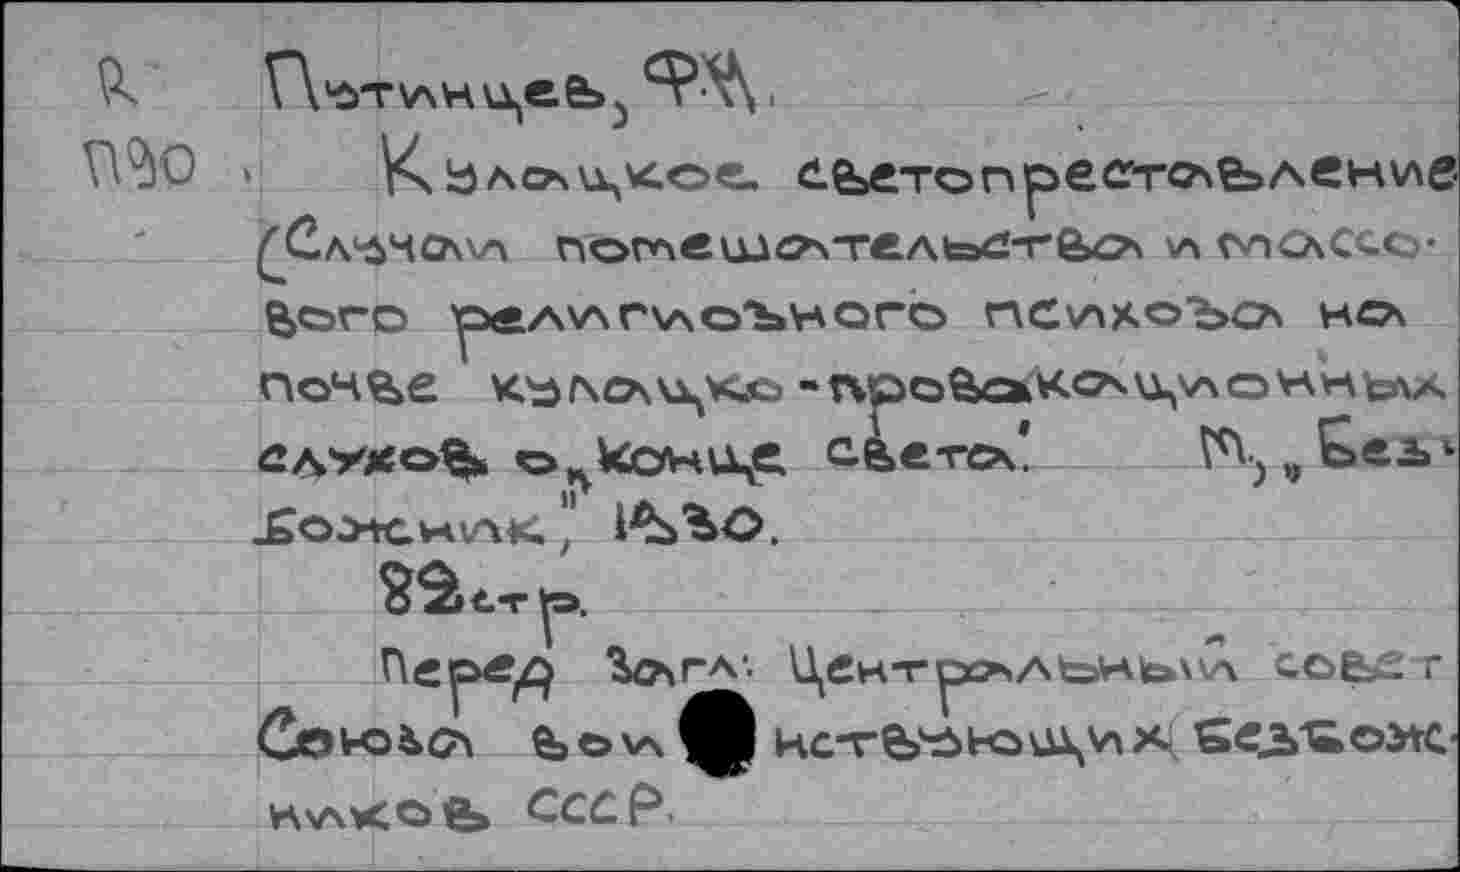 R Путинцев, Ф.М.
П90 Кулацкое светопреставление
(Случаи помешательства и массо-
вого религиозного психоза на
почве кулацко-провокационных
слухов о „конце света". М., „Без-
божник", 1930.
82стр.
Перед загл: Центральный совет
Союза воинствующих безбож-
ников СССР.